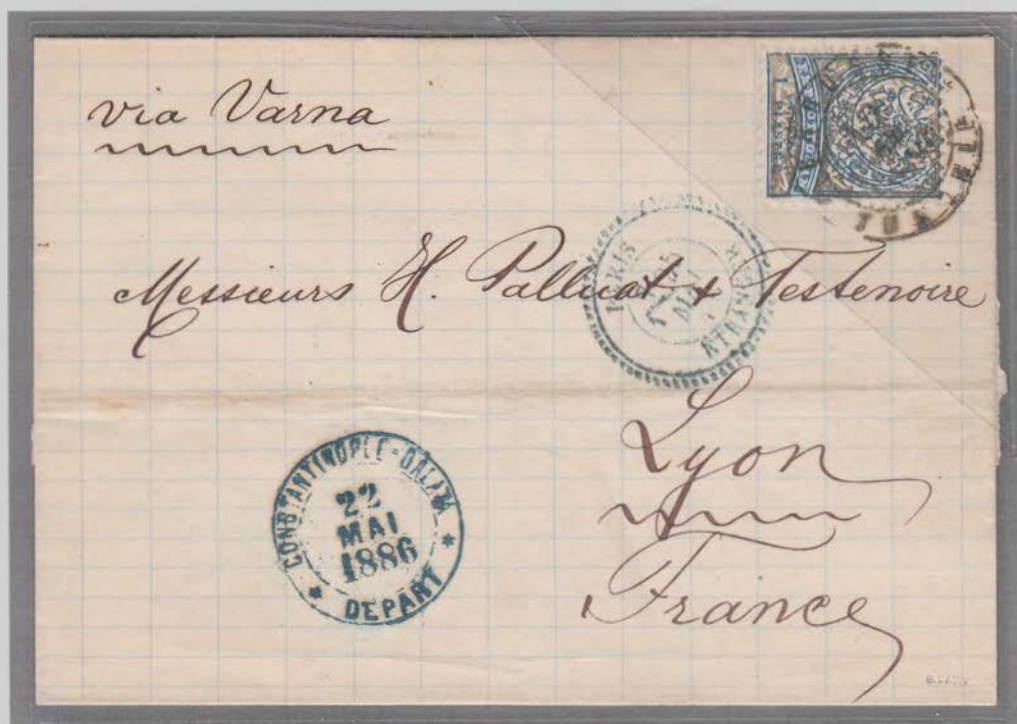 via Varna
Messieurs H. Palluat & Testenoire
Lyon
France
CONSTANTINOPLE-GALATA
22
MAI
1886
DEPART
PARIS
MAI